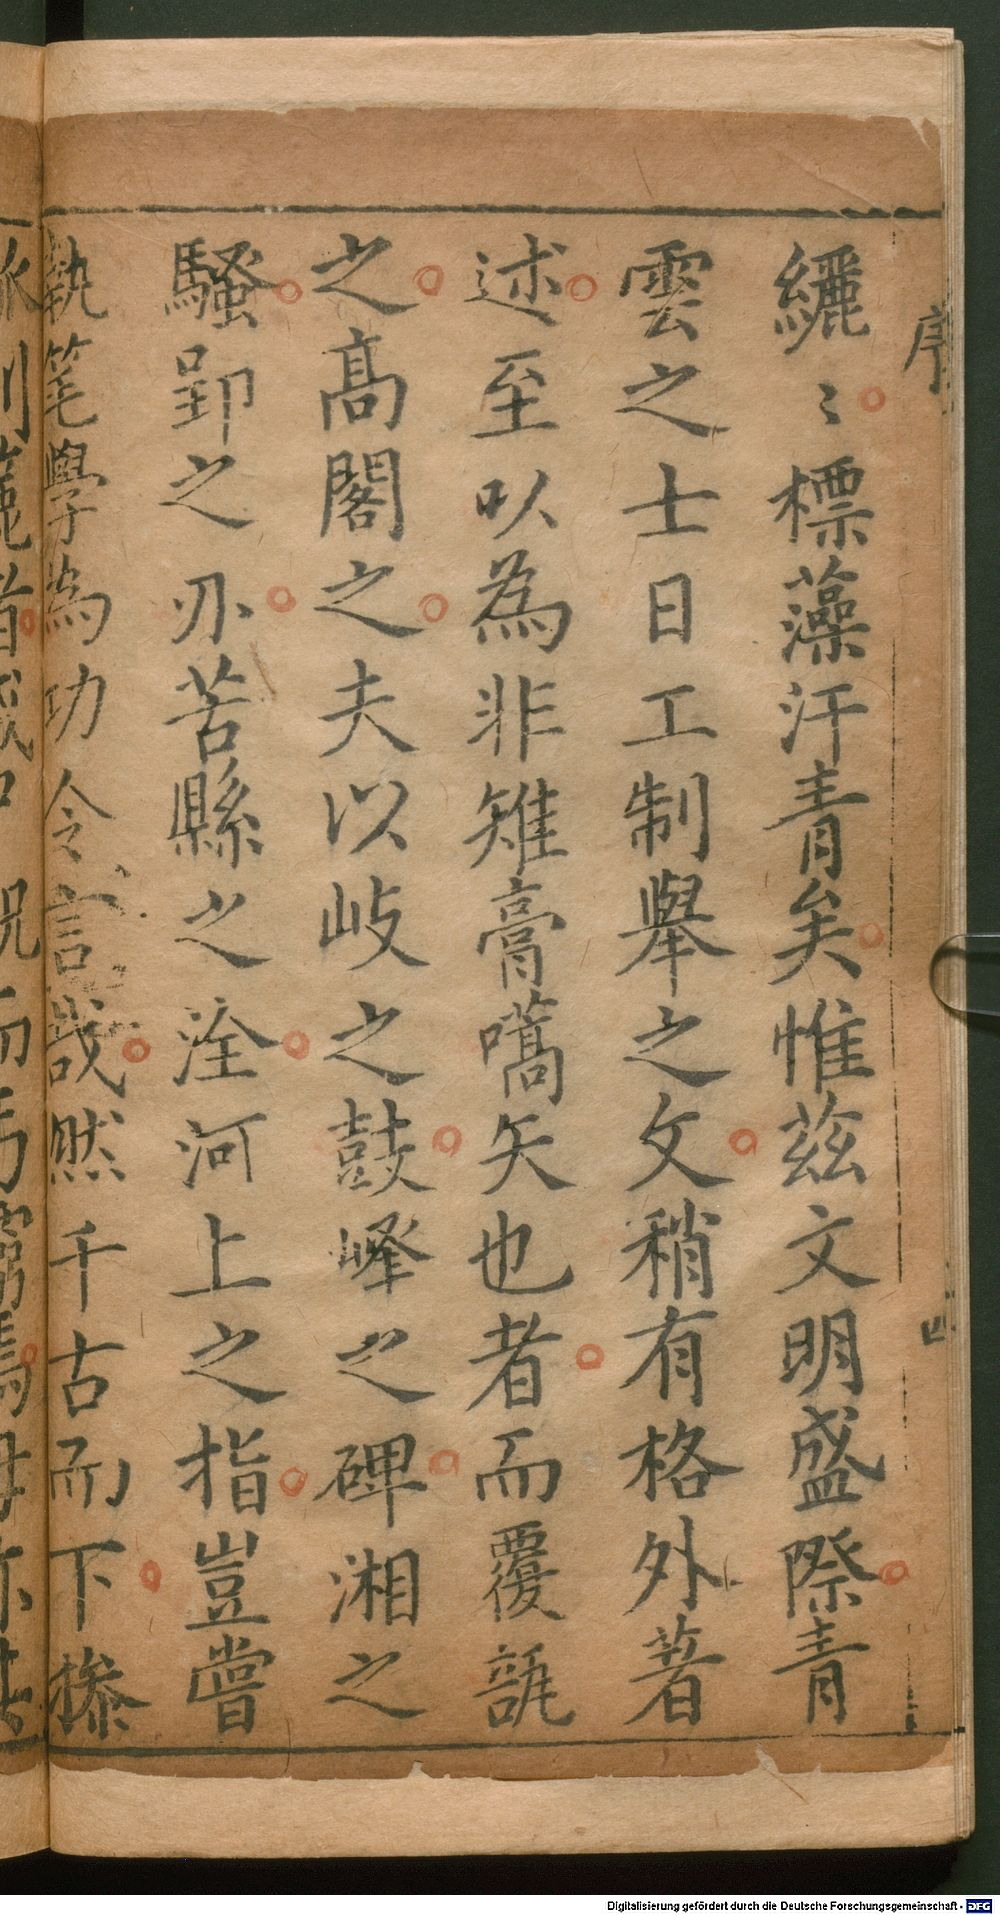 序
四
纚〻標藻汗青矣惟茲文明盛際青
雲之士日工制舉之文稍有格外著
述至以為非雉膏嚆矢也者而覆瓿
之高閣之夫以岐之鼓嶧之碑湘之
騷郢之刅苦縣之洤河上之指豈嘗
執筆學為功令言哉然千古而下摻
Digitalisierung gefördert durch die Deutsche Forschungsgemeinschaft - DFG